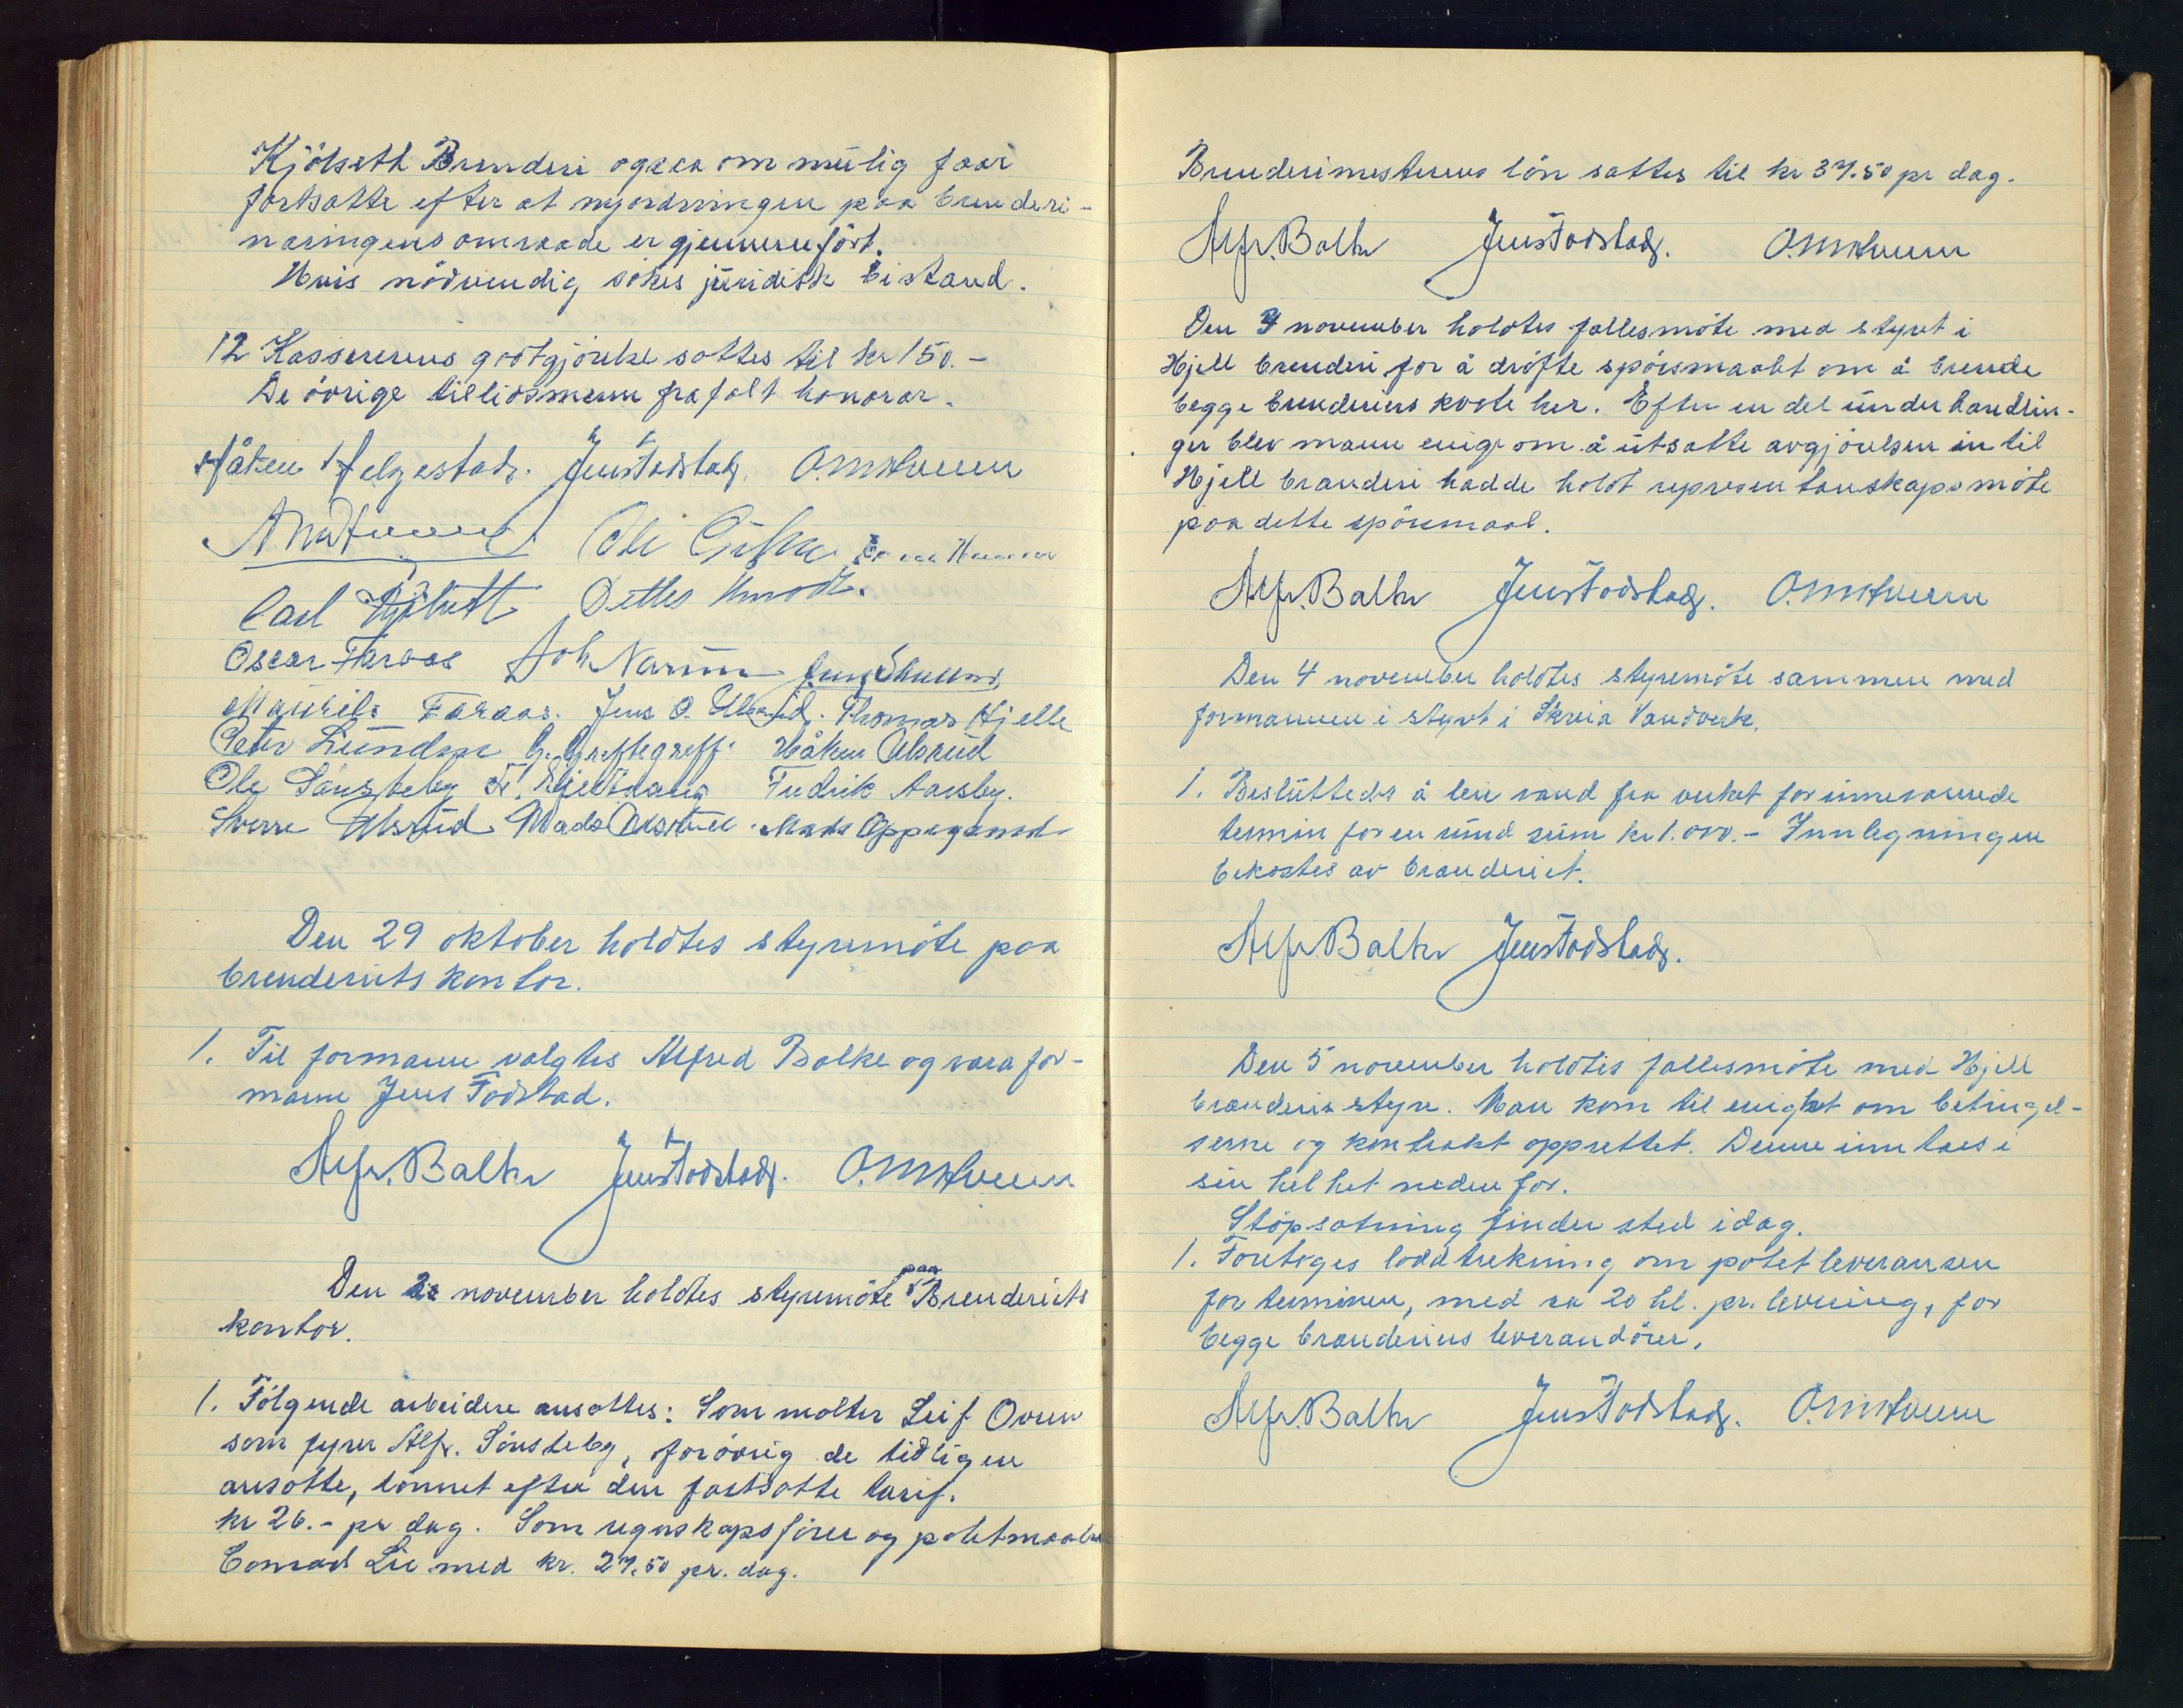 Kjölseth Brenderi ogsaa om mulig faar
fortsætte efter at nyordningen paa brenderi-
næringens omraade er gjennemført.
Hvis nödvendig sökes juridisk bistand.
12 Kassererens godtgjörelse sattes til kr 150.-
De övrige tillidsmenn frafalt honorar.
Håken Helgestad. Jens Fodstad. O.M. Hveem
Ole
Carl Kjölseth
Oscar Faraas Joh Narum
Maurits Faraas. Jens O. Ulsrud. Thomas Hjelle
Peter Lunden G. Greftegreff. Håken Ulsrud
Ole Sönsteby Fredrik Aarsby.
Sverre Ulsrud Mads Ulsrud Mads Oppegaard
Den 29 oktober holdtes styremöte paa
brenderiets kontor.
1. Til formann valgtes Alfred Balke og vara for-
mann Jens Fodstad.
Alfr. Balke Jens Fodstad. O.M. Hveem
Den 2 november holdtes styremöte paa Brenderiets
kontor.
1. Fölgende arbeidere ansattes: Som malter Leif Oven
som fyrer Alfr. Sönsteby, forövrig de tidligere
ansatte, lönnet efter den fastsatte tarif.
kr 26.- pr dag. Som regnskapsförer og potetmaaler
Conrad Lie med kr. 27.50 pr. dag.
Brenderimesterens lön sattes til kr 37.50 pr dag.
Alfr. Balke Jens Fodstad. O.M. Hveem
Den november holdtes fællesmöte med styret i
Hjell brenderi for å dröfte spörsmaalet om å brende
begge brenderiers kvote her. Efter en del underhandlin-
ger blev mann enige om å utsætte avgjörelsen in til
Hjell brænderi hadde holdt representanskapsmöte
paa dette spörsmaal.
Alfr. Balke Jens Fodstad. O.M. Hveem
Den 4 november holdtes styremöte sammen med
formannen i styret i Skreia Vandverk.
1. Besluttedes å leie vand fra verket for inneværende
termin for en rund sum kr 1.000.- Innlegningen
bekostes av brænderiet.
Alfr. Balke Jens Fodstad.
Den 5 november holdtes fællesmöte med Hjell
brænderis styre. Man kom til enighet om betingel-
serne og kontrakt opprettet. Denne inntaes i
sin helhet nedenfor.
Stöpsætning finder sted idag.
1. Foretoges loddtrekning om potetleveransen
for terminen, med ca 20 hl. pr. levering, for
begge brænderiers leverandörer.
Alfr. Balke Jens Fodstad. O.M. Hveem